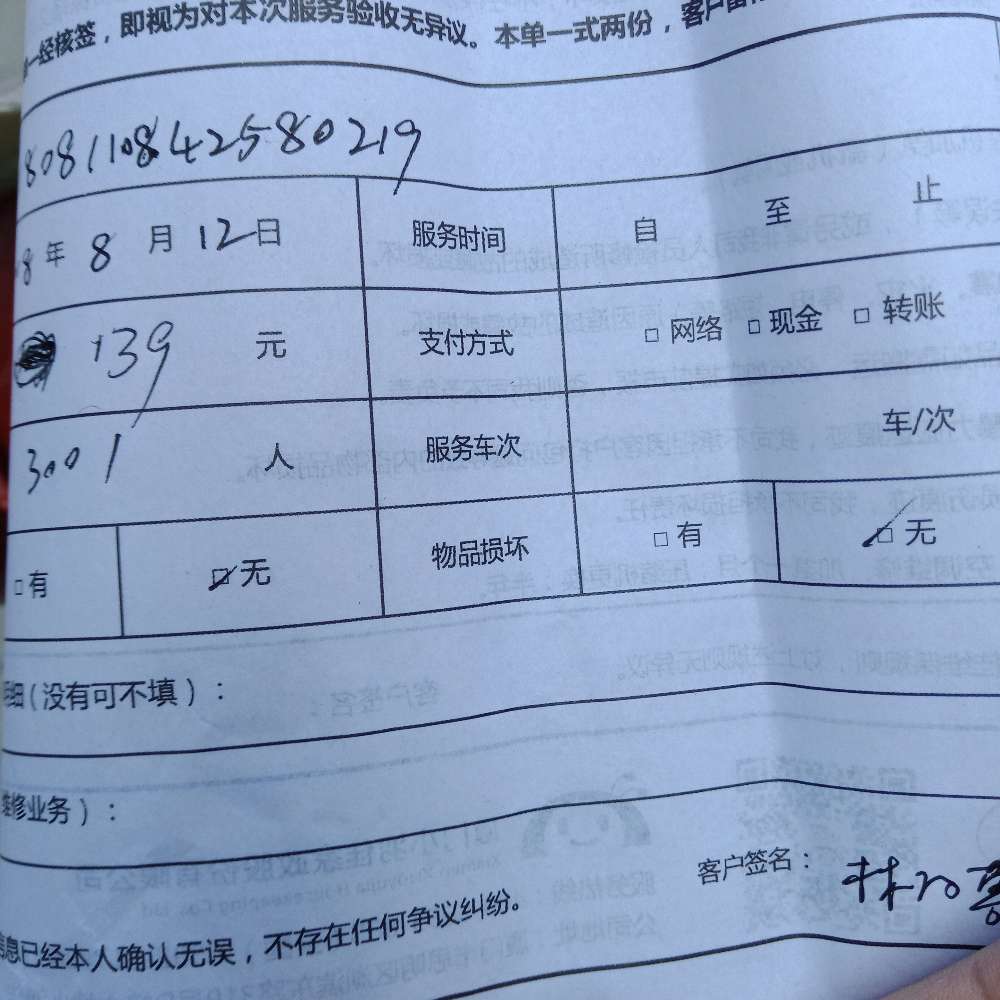 一经核签，即视为对本次服务验收无异议。本单一式两份，客户留
808110842580219
8年 8 月 12日 服务时间 自 至 止
139 元 支付方式 □ 网络 □ 现金 □ 转账
3001 人 服务车次 车/次
□ 有 □ 无 物品损坏 □ 有 □ 无
细（没有可不填）：
维修业务）：
客户签名：
信息已经本人确认无误，不存在任何争议纠纷。